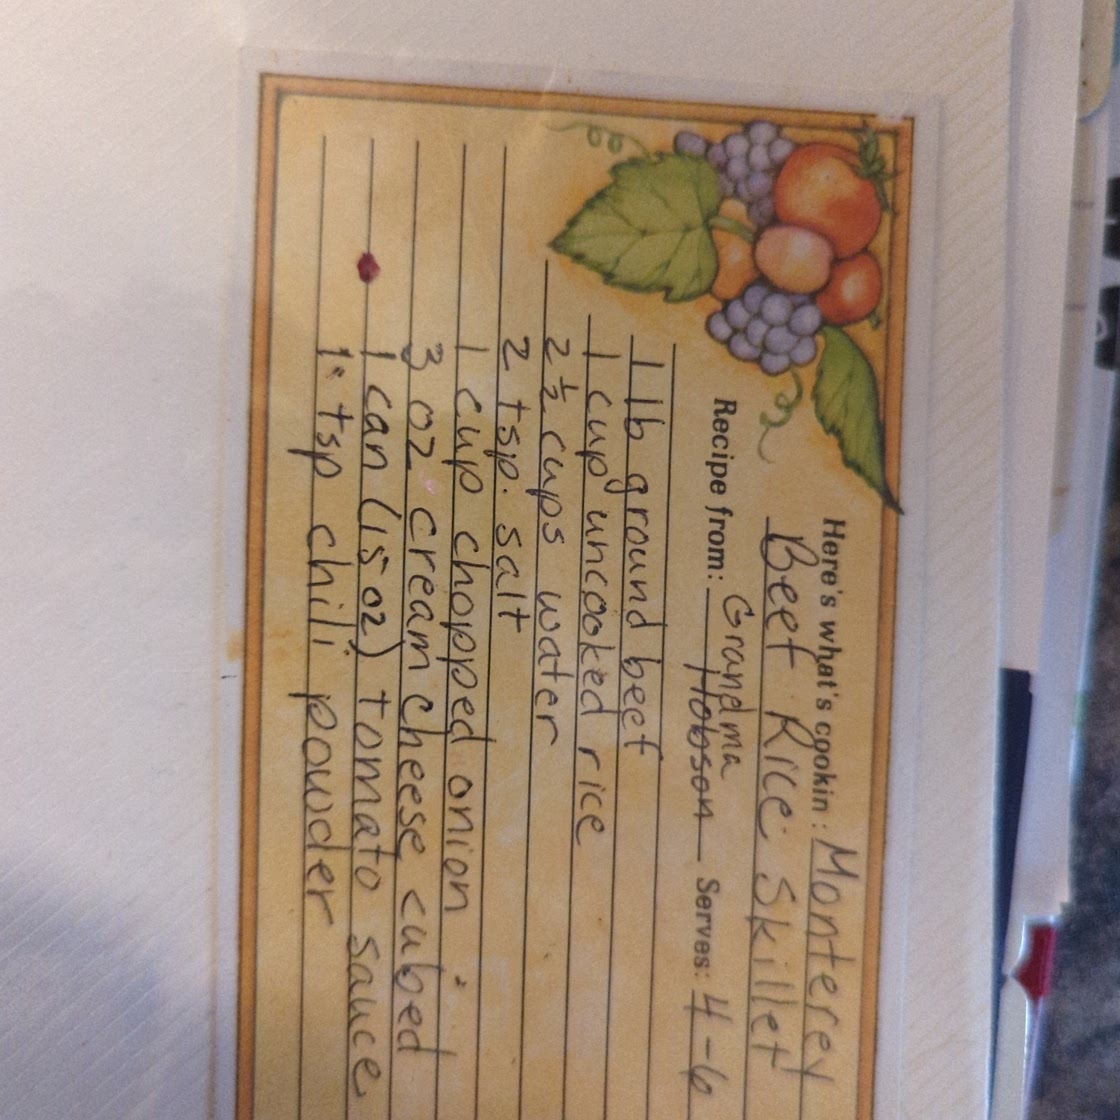 Here's what's cookin: Monterey
Beef Rice Skillet
Recipe from: Grandma Hobson Serves: 4-6
1 lb ground beef
1 cup uncooked rice
2 ½ cups water
2 tsp. salt
1 cup chopped onion
3 oz cream cheese cubed
1 can (15 oz) tomato sauce
1 tsp chili powder